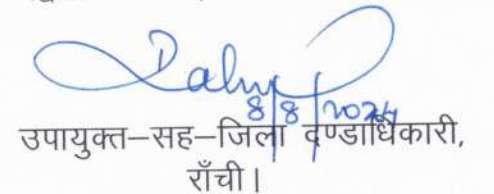 8/8/2024
उपायुक्त–सह–जिला दण्डाधिकारी,
राँची।